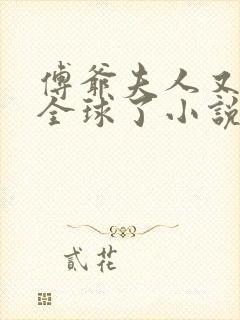 傅爺夫人又
全球了小說
貳花